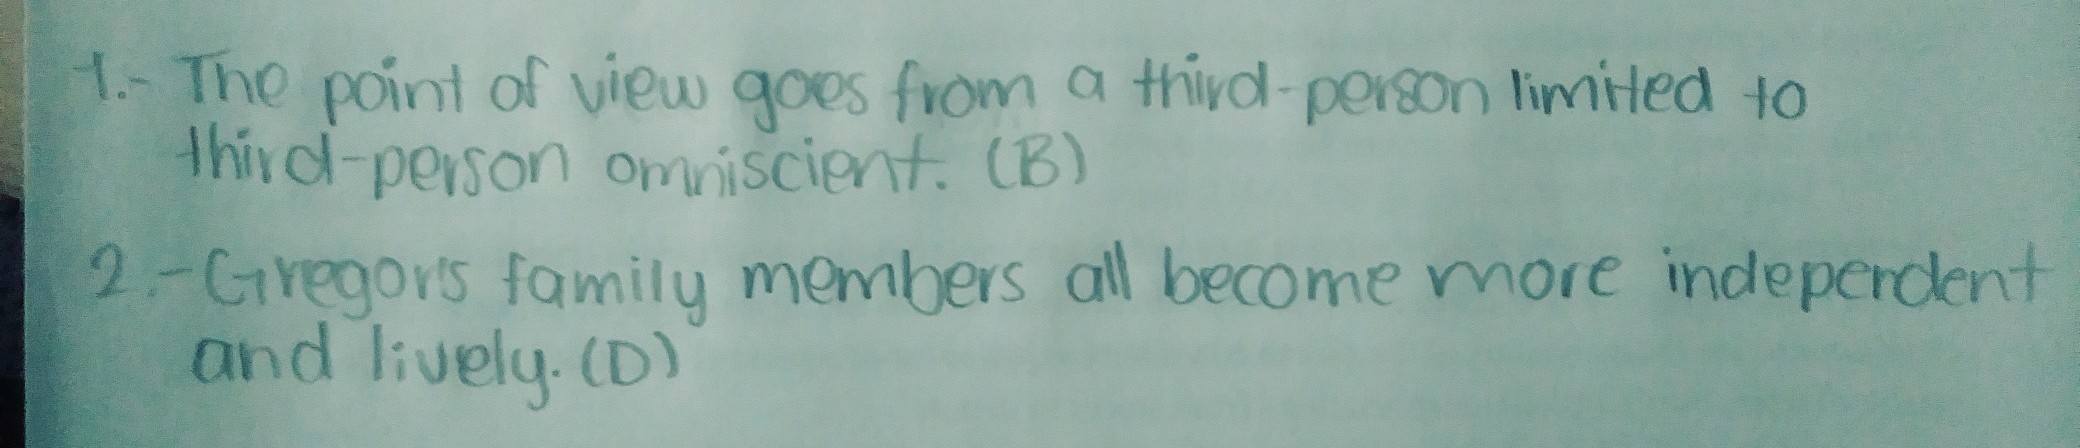 1.- The point of view goes from a third-person limited to
third-person omniscient. (B)
2.- Gregor's family members all become more independent
and lively. (D)